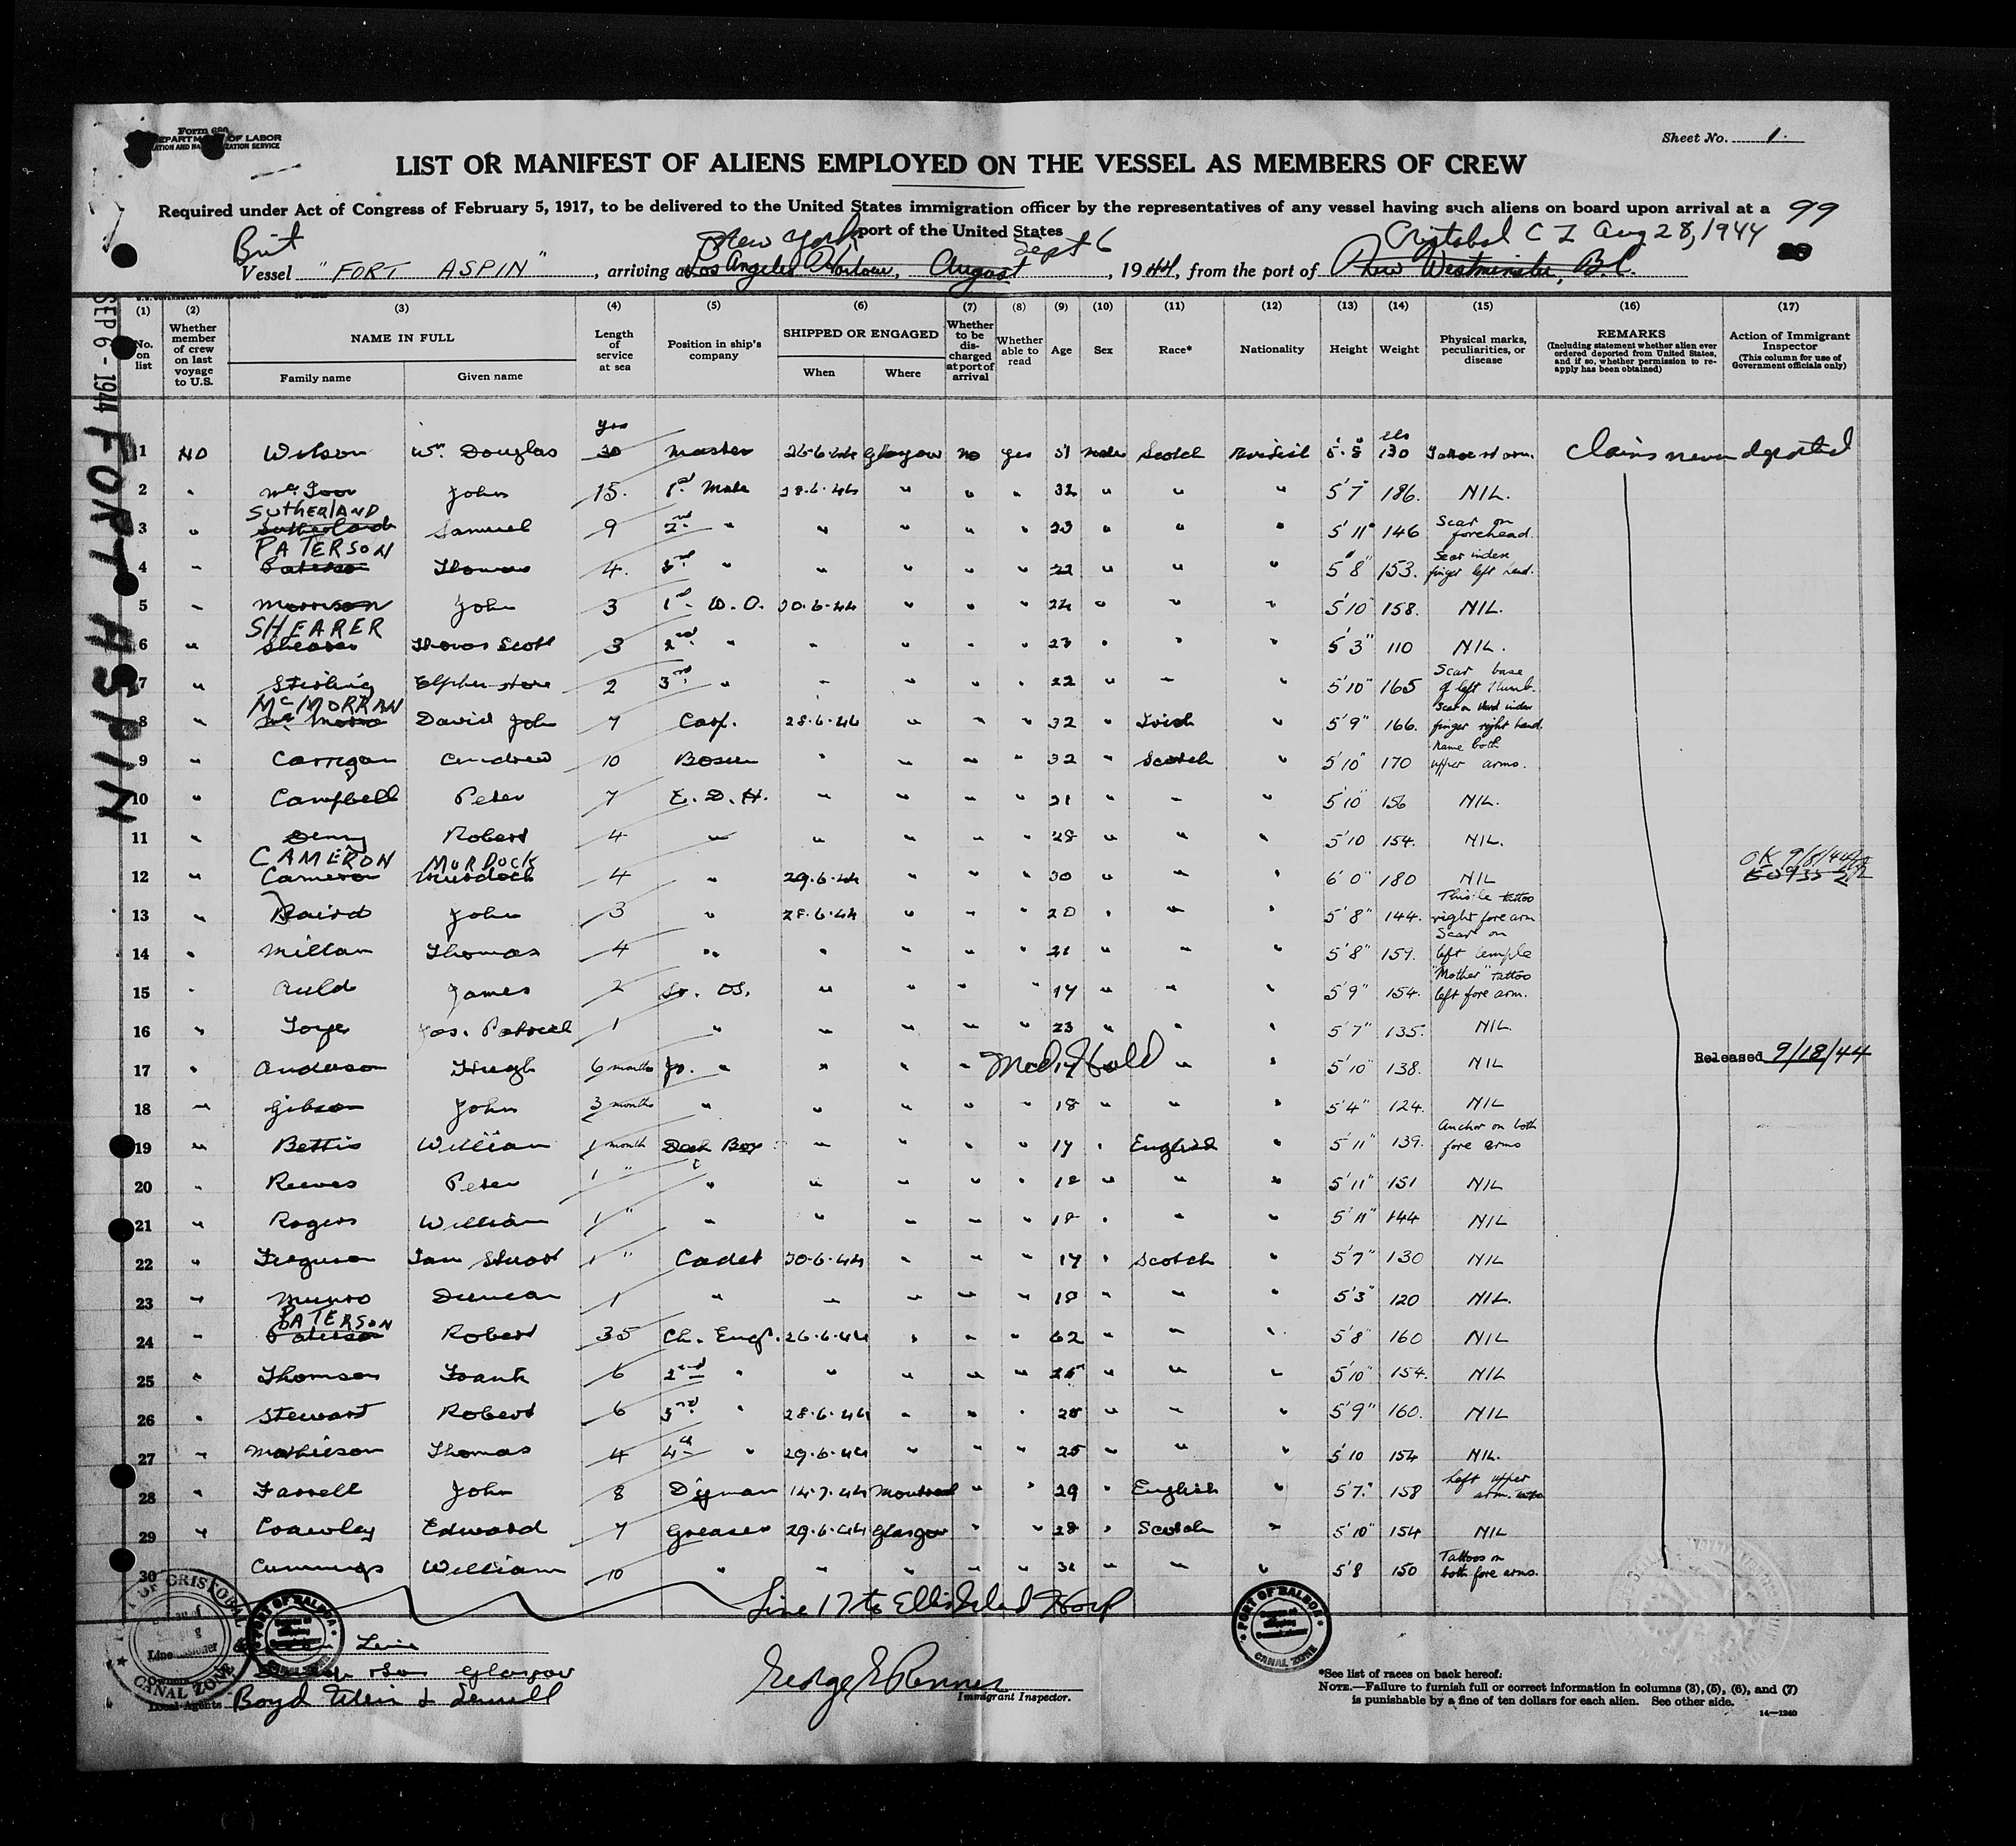 Form 680
DEPARTMENT OF LABOR
IMMIGRATION AND NATURALIZATION SERVICE
Sheet No. 1.
LIST OR MANIFEST OF ALIENS EMPLOYED ON THE VESSEL AS MEMBERS OF CREW
Required under Act of Congress of February 5, 1917, to be delivered to the United States immigration officer by the representatives of any vessel having such aliens on board upon arrival at a 99
port of the United States
Brit New York Sept 6 Cristobal C Z Aug 28, 1944
Vessel "FORT ASPIN", arriving at Los Angeles Harbour, August, 1944, from the port of New Westminster, B.C.
SEP 6 - 1944 FORT ASPIN
(1) (2) (3) (4) (5) (6) (7) (8) (9) (10) (11) (12) (13) (14) (15) (16) (17)
No. on list
Whether member of crew on last voyage to U.S.
NAME IN FULL
Family name Given name
Length of service at sea
Position in ship's company
SHIPPED OR ENGAGED
When Where
Whether to be discharged at port of arrival
Whether able to read
Age Sex Race* Nationality Height Weight
Physical marks, peculiarities, or disease
REMARKS
(Including statement whether alien ever ordered deported from United States, and if so, whether permission to reapply has been obtained)
Action of Immigrant Inspector
(This column for use of Government officials only)
yrs lbs
1 NO Wilson Wm Douglas 30 Master 26-6-44 Glasgow No yes 51 Male Scotch British 5' 5" 130 Tattoo rt arm. Claims never deported
2 " John 15. 1st Mate 28-6-44 " " " 32 " " " 5'7" 186. NIL.
SUTHERLAND
3 " Sutherland Samuel 9 2nd " " " " " 23 " " " 5'11" 146 Scar on forehead.
PATERSON
4 " Paterson Thomas 4. 3rd " " " " " 22 " " " 5'8" 153. Scar index finger left hand.
5 " Morrison John 3 1st W.O. 30-6-44 " " " 24 " " " 5'10" 158. NIL.
SHEARER
6 " Shearer Thomas Scott 3 2nd " " " " " 23 " " " 5'3" 110 NIL.
7 " Stirling Elphinstone 2 3rd " " " " " 22 " " " 5'10" 165 Scar base of left thumb.
McMORRAN
8 " David John 7 Carp. 28-6-44 " " " 32 " Irish " 5'9" 166. Scar on third index finger right hand.
9 " Carrigan Andrew 10 Bosun " " " " 32 " Scotch " 5'10" 170 Name both upper arms.
10 " Campbell Peter 7 E.D.H. " " " " 21 " " " 5'10" 156 NIL.
11 " Denny Robert 4 " " " " " 28 " " " 5'10 154. NIL.
CAMERON MURDOCK OK 9/8/44
12 " Cameron Murdoch 4 " 29-6-44 " " " 30 " " " 6'0" 180 NIL
13 " Baird John 3 " 28-6-44 " " " 20 " " " 5'8" 144. Thistle tattoo right fore arm
14 " Millar Thomas 4 " " " " " 21 " " " 5'8" 159. Scar on left temple
15 " Auld James 2 Sr. OS. " " " " 19 " " " 5'9" 154. "Mother" tattoo left fore arm.
16 " Toye Jas. Patrick 1 " " " " " 23 " " " 5'7" 135. NIL.
17 " Anderson Hugh 6 months Jr. " " " " Med Hold " " 5'10" 138. NIL Released 9/18/44
18 " Gibson John 3 months " " " " " 18 " " " 5'4" 124. NIL
19 " Bettis William 1 month Deck Boy " " " " 17 " English " 5'11" 139. Anchor on both fore arms
20 " Reeves Peter 1 " " " " " " 18 " " " 5'11" 151 NIL
21 " Rogers William 1 " " " " " " 18 " " " 5'11" 144 NIL
22 " Ferguson Ian Stuart 1 " Cadet 30-6-44 " " " 17 " Scotch " 5'7" 130 NIL
23 " Munro Duncan 1 " " " " " 18 " " " 5'3" 120 NIL.
PATERSON
24 " Paterson Robert 35 Ch. Eng. 26-6-44 " " " 62 " " " 5'8" 160 NIL
25 " Thomson Frank 6 2nd " " " " " 25 " " " 5'10" 154. NIL
26 " Stewart Robert 6 3rd " 28-6-44 " " " 28 " " " 5'9" 160. NIL
27 " Mathieson Thomas 4 4th " 29-6-44 " " " 25 " " " 5'10 154 NIL.
28 " Farrell John 8 D'yman 14-7-44 Montreal " " 29 " English " 5'7" 158 Left upper arm. tattoo
29 " Crawley Edward 7 Greaser 29-6-44 Glasgow " " 28 " Scotch " 5'10" 154 NIL
30 " Cummings William 10 " " " " " 31 " " " 5'8 150 Tattoos on both fore arms.
Line 17 to Ellis Island Hosp
PORT OF CRISTOBAL CANAL ZONE
PORT OF BALBOA CANAL ZONE
PORT OF BALBOA CANAL ZONE
Line
Glasgow
Local Agents Boyd
George E Renner
Immigrant Inspector.
*See list of races on back hereof.
NOTE.—Failure to furnish full or correct information in columns (3), (5), (6), and (7)
is punishable by a fine of ten dollars for each alien. See other side.
14—1240